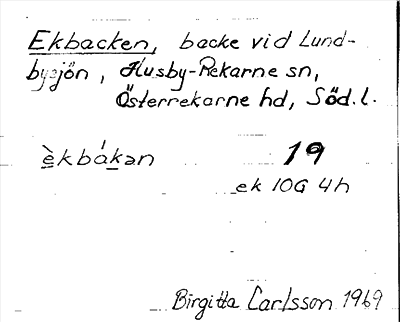 Ekbacken, backe vid Lund-
bysjön, Husby-Rekarne sn,
Österrekarne hd, Söd. l.
èkbákan 19
ek 10G 4h
Birgitta Carlsson 1969